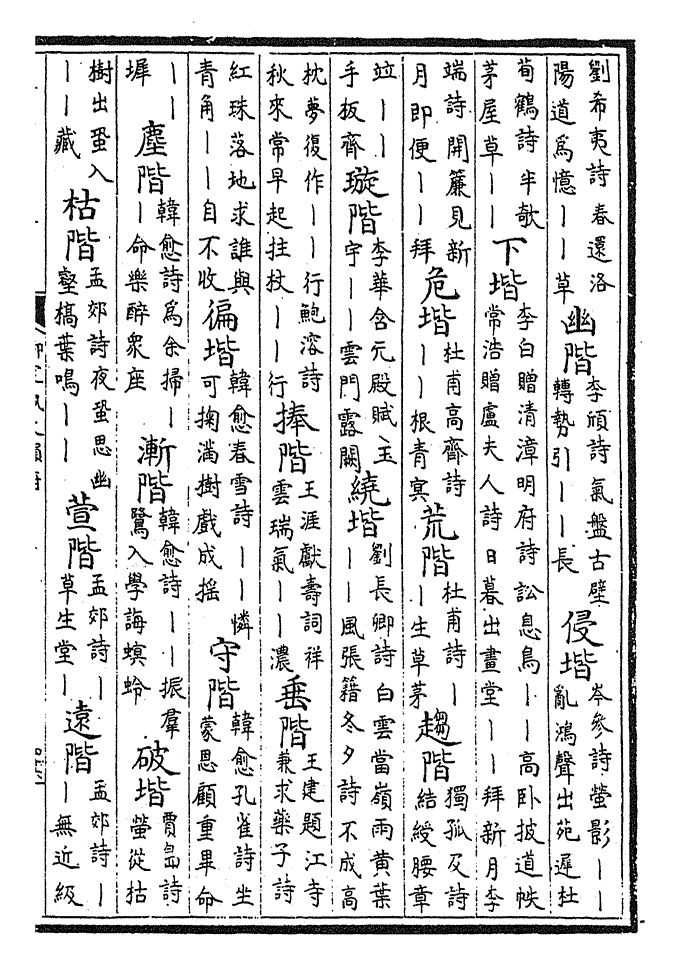 劉希夷詩春還洛陽道爲憶——草 幽階 李頎詩氣盤古壁轉勢引——長 侵堦 岑參詩螢影——亂鴻聲出苑遲杜
荀鶴詩半欹茅屋草—— 下堦 李白贈清漳明府詩訟息鳥——高卧披道帙常浩贈盧夫人詩日暮出畫堂——拜新月李
端詩開簾見新月即便——拜 危堦 杜甫高齋詩——根青冥 荒階 杜甫詩——生草茅 趨階 獨孤及詩結綬腰章
竝——手板齊 璇階 李華含元殿賦玉宇——雲門露闕 繞堦 劉長卿詩白雲當嶺雨黄葉——風張籍冬夕詩不成高
枕夢復作——行鮑溶詩秋來常早起拄杖——行 捧階 王涯獻壽詞祥雲瑞氣——濃 垂階 王建題江寺兼求藥子詩
紅珠落地求誰與青角——自不收 偏堦 韓愈春雪詩——憐可掬滿樹戲成摇 守階 韓愈孔雀詩坐蒙恩顧重畢命
——墀 塵階 韓愈詩爲余掃——命樂醉眾座 漸階 韓愈詩——振羣鷺入學誨螟蛉 破堦 賈島詩螢從枯
樹出蛩入——藏 枯階 孟郊詩夜蛩思幽壑槁葉鳴—— 萱階 孟郊詩—草生堂— 遠階 孟郊詩——無近級